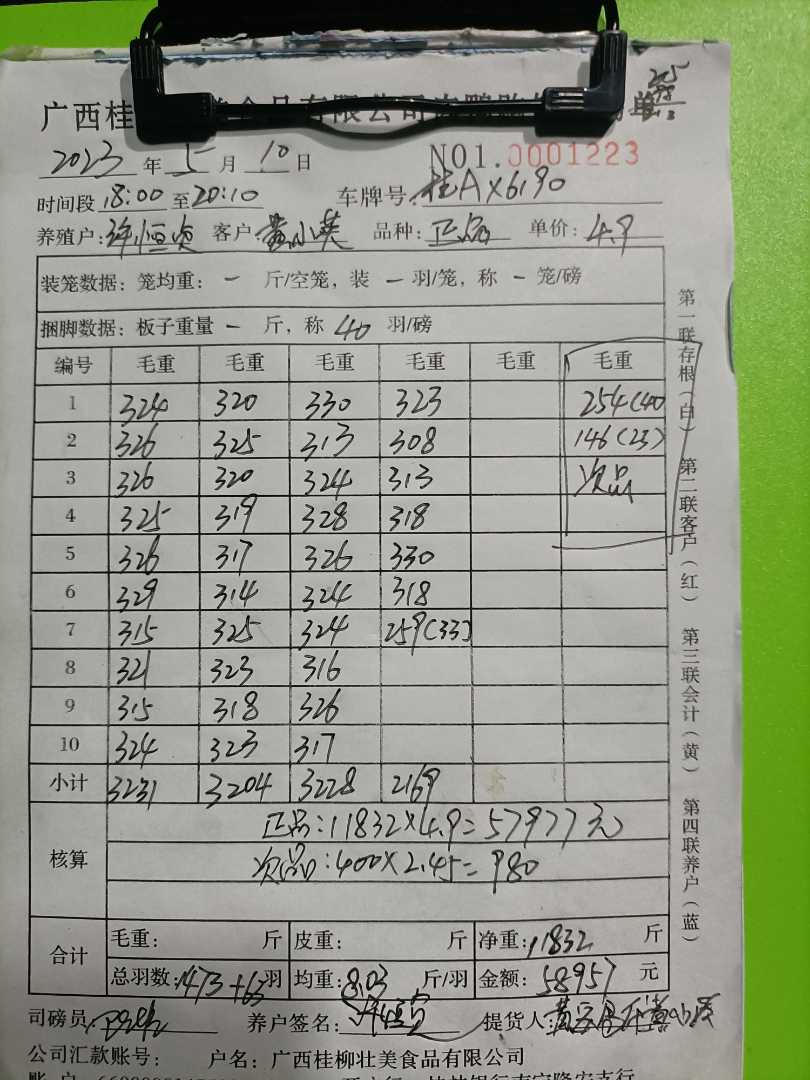 广西桂
单
2023 年 5 月 10 日 NO1.0001223
时间段 18:00 至 20:10 车牌号: 桂AX6190
养殖户: 许恒 客户: 黄小英 品种: 正品 单价: 4.9
装笼数据: 笼均重: 一 斤/空笼, 装 一 羽/笼, 称 一 笼/磅
捆脚数据: 板子重量 一 斤, 称 40 羽/磅
编号 毛重 毛重 毛重 毛重 毛重 毛重
1 324 320 330 323 254(40)
2 326 325 313 308 146(23)
3 326 320 324 313 次品
4 325 319 328 318
5 326 317 326 330
6 329 314 324 318
7 315 325 324 259(33)
8 321 323 316
9 315 318 326
10 324 323 317
小计 3231 3204 3228 2169
核算 正品:11832×4.9=57977元
次品:400×2.45=980
合计 毛重: 斤 皮重: 斤 净重: 11832 斤
总羽数: 1473+63 羽 均重: 8.03 斤/羽 金额: 58957 元
司磅员: 养户签名: 提货人:
公司汇款账号: 户名: 广西桂柳壮美食品有限公司
第一联存根(白) 第二联客户(红) 第三联会计(黄) 第四联养户(蓝)